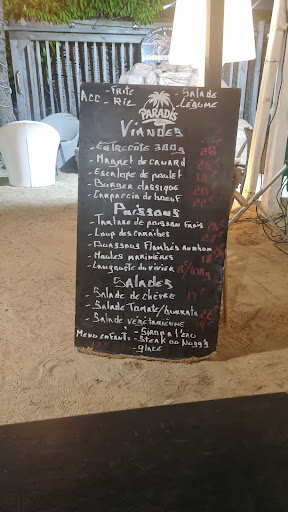 ACC - Frite - Salade
- Riz - Légume
PARADIS
Viandes
- Entrecôte 300g
- Magret de canard
- Escalope de poulet
- Burger classique
- Carpaccio de boeuf
Poissons
- Tartare de poisson frais
- Loup des caraibes
- Ouassous flambés au rhum
- Moules marinières
- Langouste du vivier
Salades
- Salade de chèvre
- Salade Tomate/burrata
- Salade végétarienne
Menu enfant: - Sirop a l'eau
- Steak ou Nugg's
- Glace